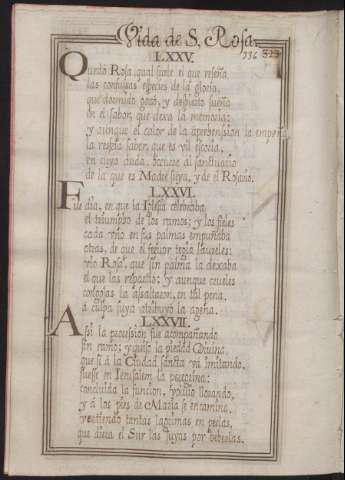 Vida de S. Rosa.
336 323
LXXV.
Quedò Rosa, qual suele el que reseña
las confusas especies de la gloria,
que dormido gozò, y despierto sueña
en el sabor, que dexa la memoria:
y aunque el calor de la aprehension la empeña
la reseña sabor, que es vil escoria,
en cuya duda, ocurre al santuario
de la que es Madre suya, y de el Rosario.
LXXVI.
Fue dia, en que la Iglesia celebraba
el triumpho de los ramos; y los fieles
cada uno en sus palmas empuñaba
otras, de que el señor tegia laureles:
viò Rosa, que sin palma la dexaba
el que las repartio; y aunque crueles
congojas la assaltaron, en tal pena,
à culpa suya atribuyò la agena.
LXXVII.
Assi la procession fue acompañando
sin ramo; y quiso la piedad Divina,
que si à la Ciudad sancta va imitando,
fuesse en Jerusalem la peregrina:
concluida la funcion, volviò llorando,
y à los pies de Maria se encamina,
vertiendo tantas lagrimas en perlas,
que diera el Sur las suyas por beberlas.